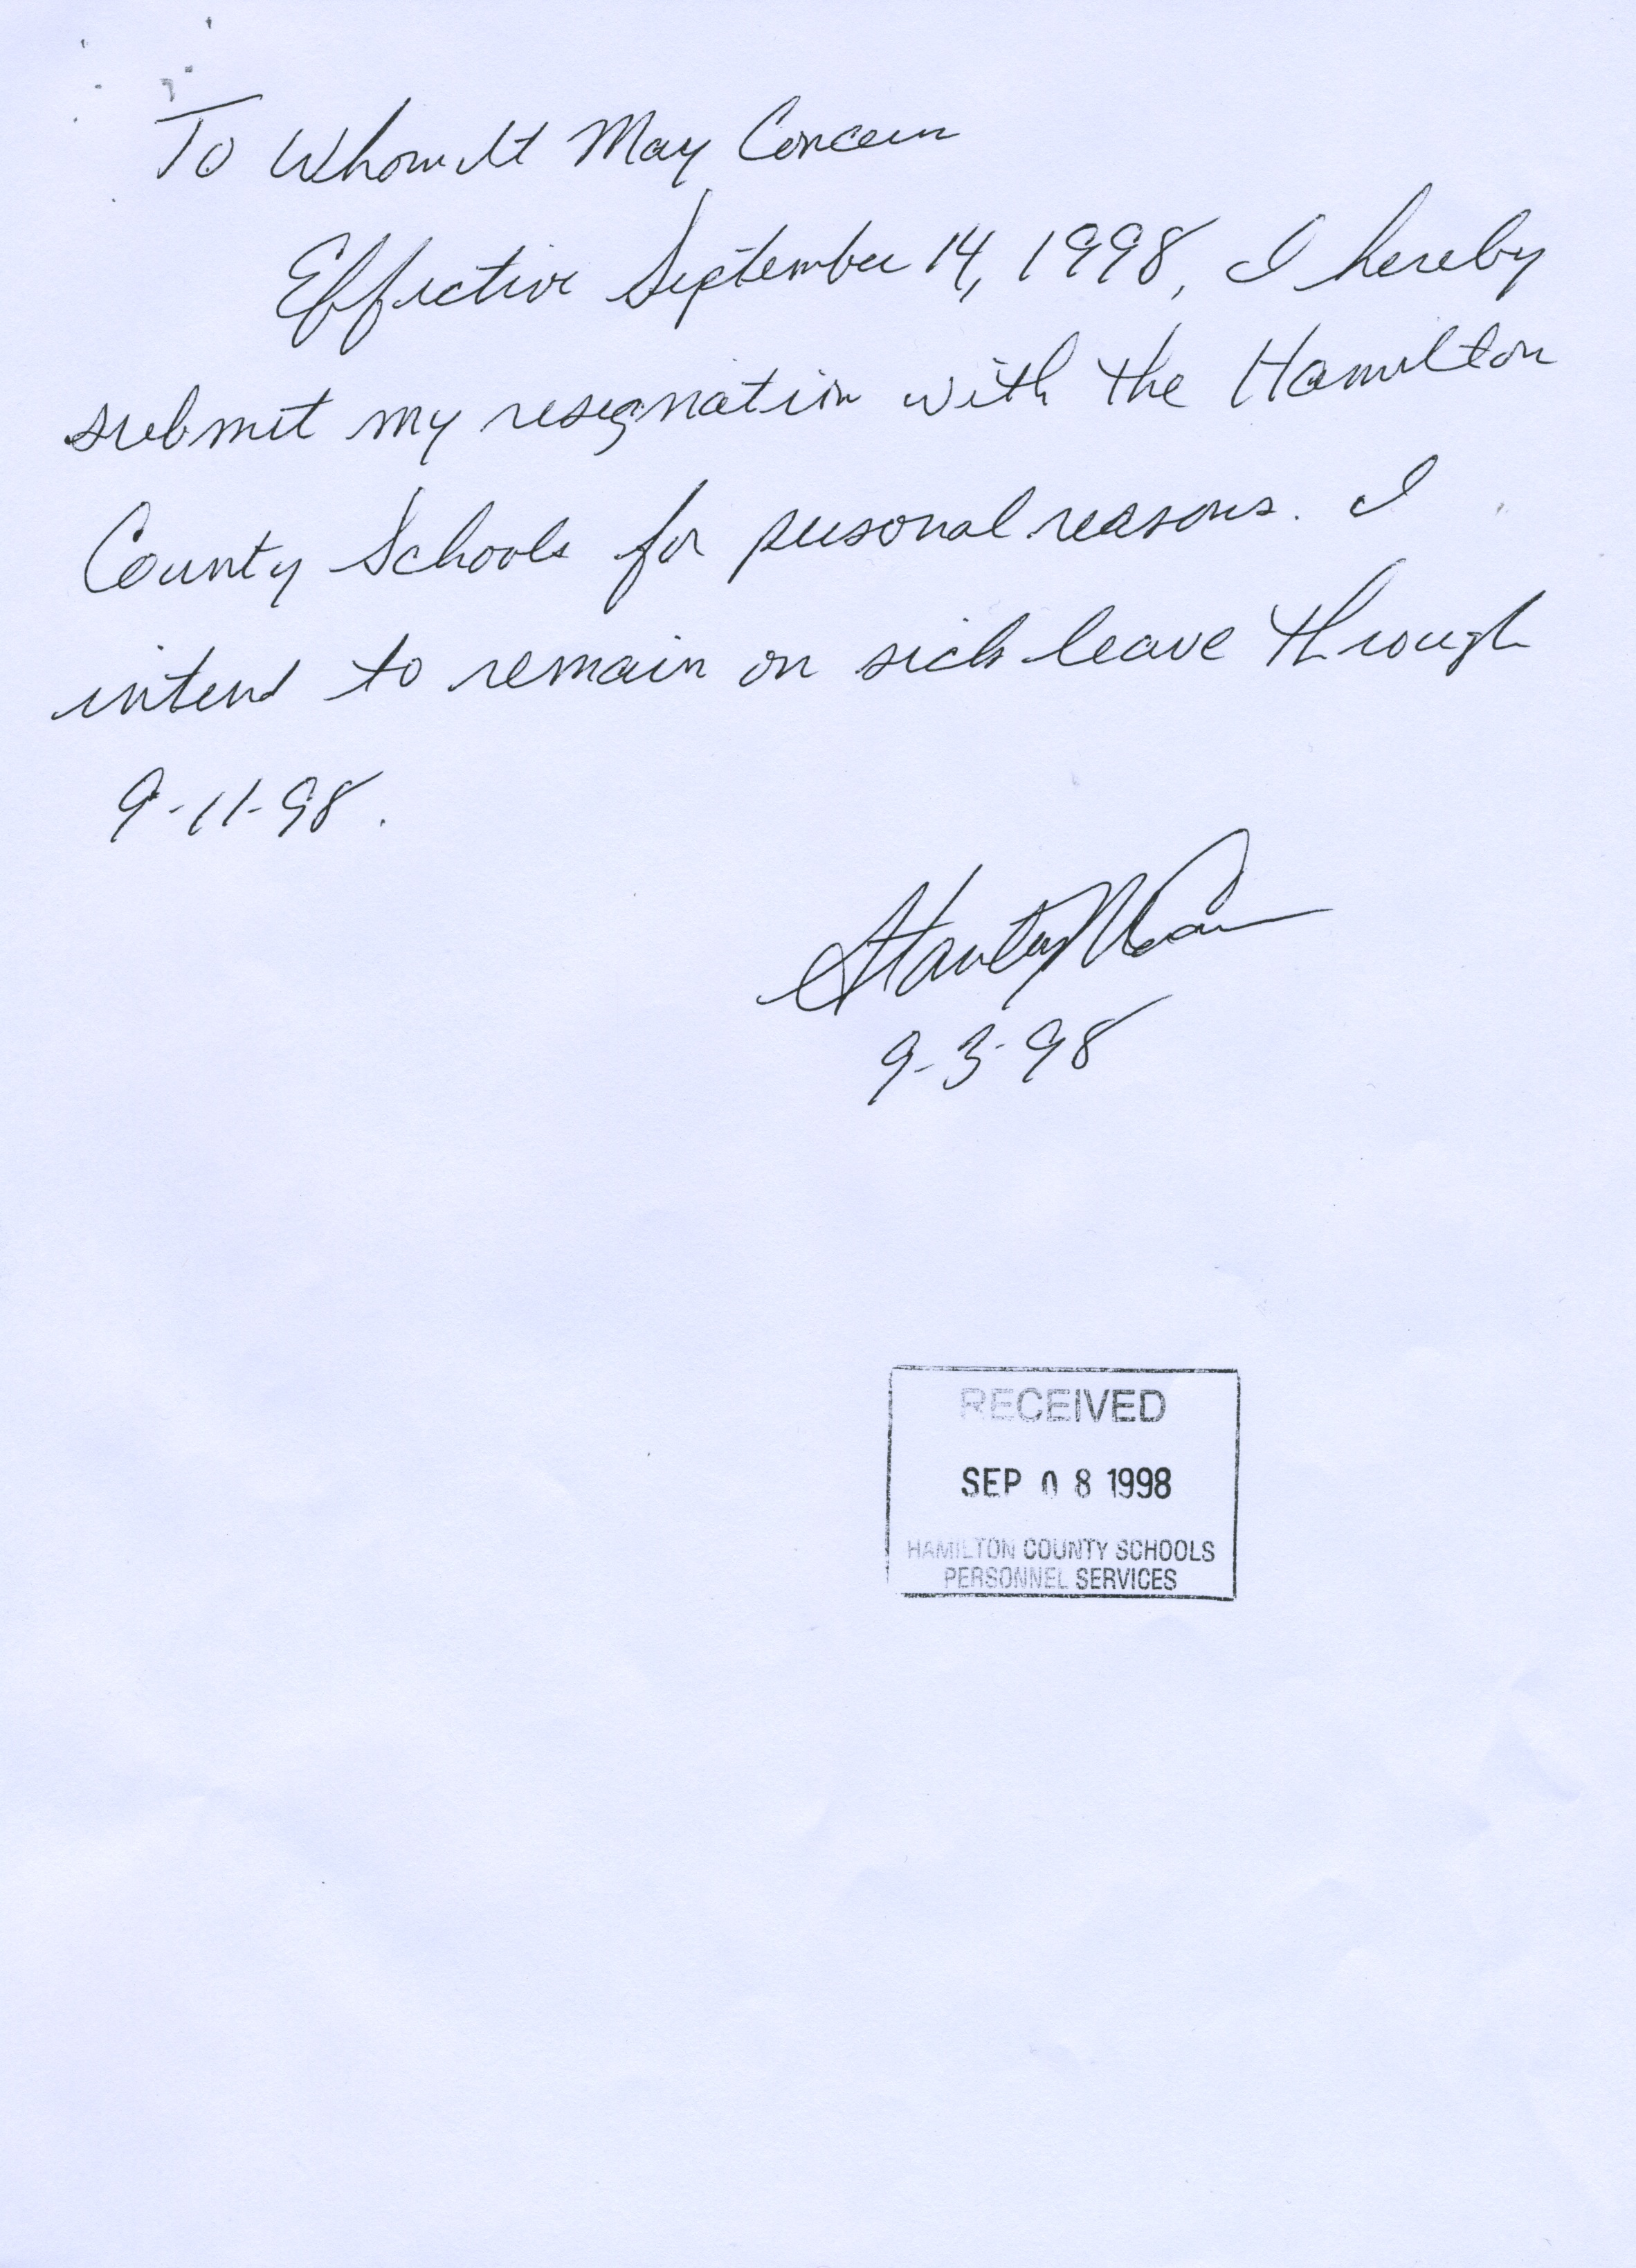 To Whom It May Concern
Effective September 14, 1998, I hereby
submit my resignation with the Hamilton
County Schools for personal reasons. I
intend to remain on sick leave through
9-11-98.
Stanley
9-3-98
RECEIVED
SEP 08 1998
HAMILTON COUNTY SCHOOLS
PERSONNEL SERVICES